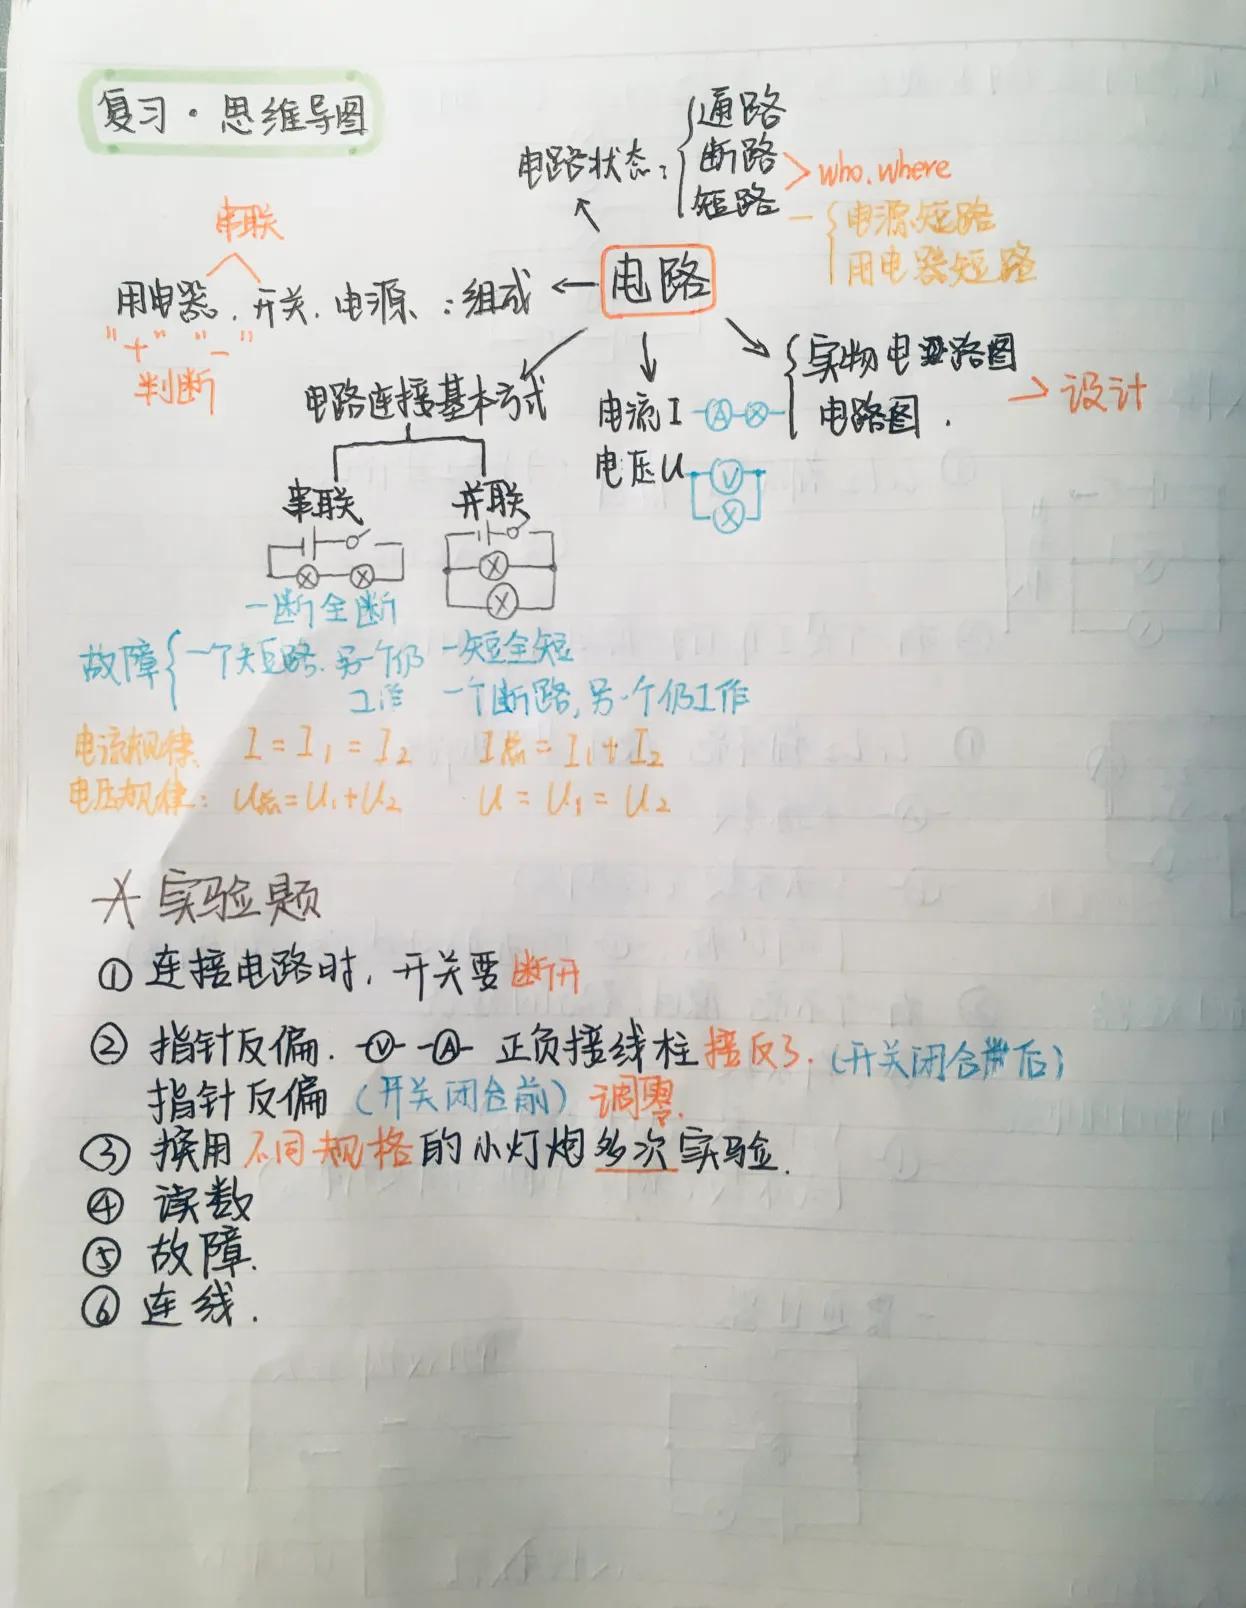 复习·思维导图
电路状态:
通路
断路
短路
who.where
电源短路
用电器短路
串联
用电器.开关.电源:组成
电路
"+" "-"
判断
电路连接基本方式
电流I A
电压U
V
实物电路图
电路图.
设计
串联 并联
一断全断
故障 一个短路.另一个仍工作
一短全短
一个断路,另一个仍工作
电流规律: I=I₁=I₂ I总=I₁+I₂
电压规律: U总=U₁+U₂ U=U₁=U₂
实验题
①连接电路时,开关要断开
②指针反偏. V A 正负接线柱接反了.(开关闭合后)
指针反偏(开关闭合前)调零.
③换用不同规格的小灯炮多次实验.
④读数
⑤故障.
⑥连线.